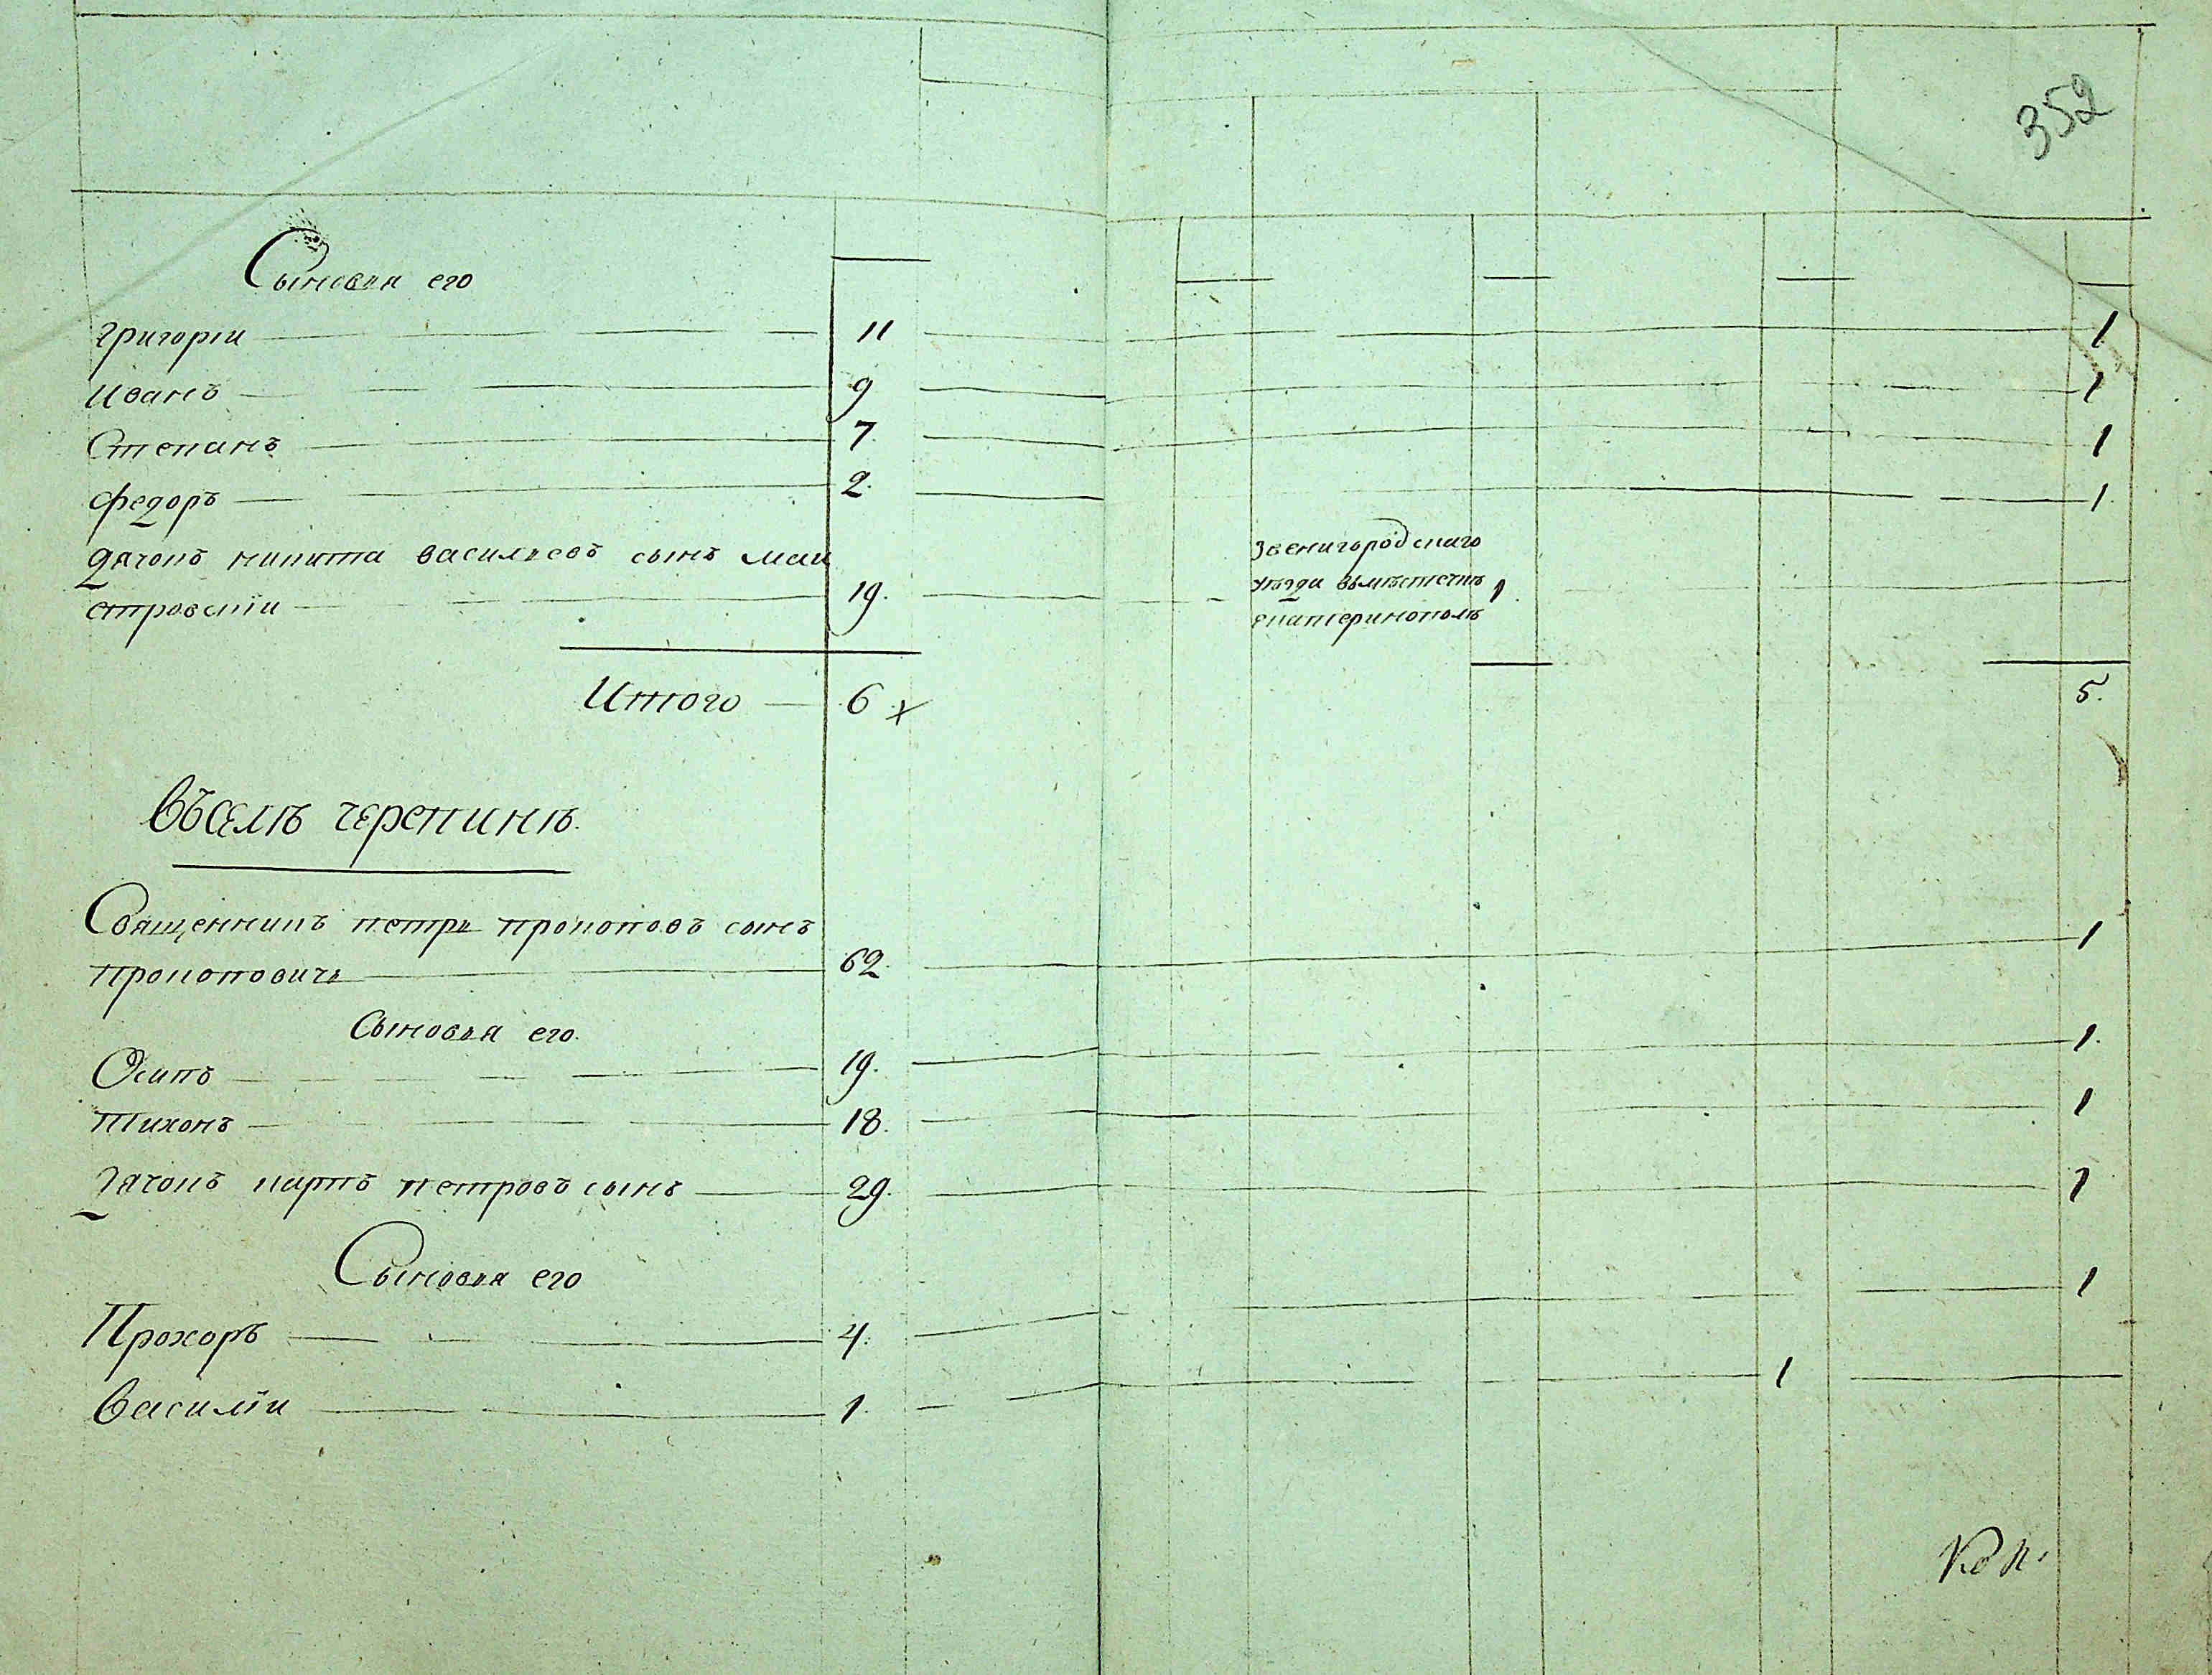 352
Сыновья его
григорїи 11 1
иванъ 9 1
Степанъ 7 1
федоръ 2. 1
дячокъ никита васильевъ сынъ маи
стровскїи 19.
Звенигородскаго
уѣзда вьмѣстечкѣ 1
екатеринополѣ
Итого 6 х 5.
Въселѣ черепинѣ.
Священникъ петръ прокоповъ сынъ
прокоповичь 62. 1
Сыновья его.
Осипъ 19. 1.
тихонъ 18. 1
дячокъ карпъ петровъ сынъ 29. 1
Сыновья его
Прохоръ 4. 1
Василїи 1. 1